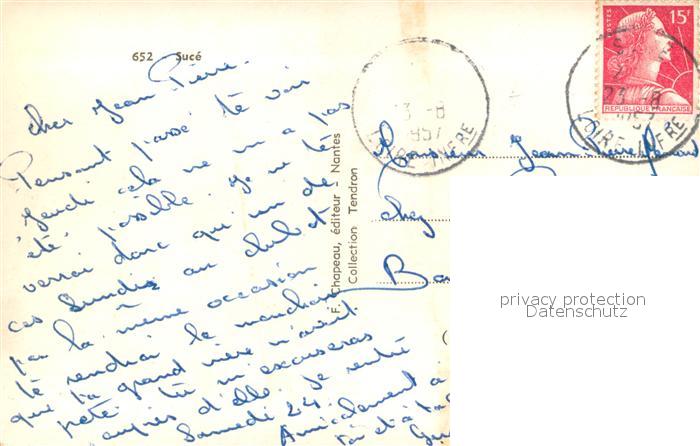 652 Sucé
cher Jean Pierre.
Pensant passé té voir
jeudi cela ne m'a pas
été possible je ne té
verrai donc qu'un de
ces lundis au début
par la même occasion
té rendrai le manchon
que ta grand mère m'avait
prété tu m'excuseras
auprès d'elle. Je rentre
Samedi 24.
Amicalement à
toi et à ta
F. Chapeau, éditeur - Nantes
Collection Tendron
23 -8
1957
LOIRE-INFRE
POSTES 15F
REPUBLIQUE FRANCAISE
23 -8
1957
LOIRE-INFRE
Monsieur Jeann Pierre
chez
Ba
privacy protection
Datenschutz